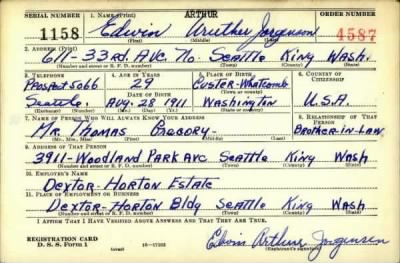 SERIAL NUMBER 1. NAME (Print) ARTHUR ORDER NUMBER
1158 Edwin Aruther Jorgenson 4587
(First) (Middle) (Last)
2. ADDRESS (Print)
611-33rd Ave. No. Seattle King Wash.
(Number and street or R. F. D. number) (Town) (County) (State)
3. TELEPHONE 4. AGE IN YEARS 5. PLACE OF BIRTH 6. COUNTRY OF CITIZENSHIP
Prospect 5066 29 Custer-Whatcomb
DATE OF BIRTH (Town or county)
Seattle. Aug. 28 1911 Washington U.S.A.
(Exchange) (Number) (Mo.) (Day) (Yr.) (State or country)
7. NAME OF PERSON WHO WILL ALWAYS KNOW YOUR ADDRESS 8. RELATIONSHIP OF THAT PERSON
Mr. Thomas Gregory- Brother-in-Law
(Mr., Mrs., Miss) (First) (Middle) (Last)
9. ADDRESS OF THAT PERSON
3911-Woodland Park Ave Seattle King Wash
(Number and street or R. F. D. number) (Town) (County) (State)
10. EMPLOYER'S NAME
Dextor-Horton Estate
11. PLACE OF EMPLOYMENT OR BUSINESS
Dextor-Horton Bldg Seattle King Wash
(Number and street or R. F. D. number) (Town) (County) (State)
I AFFIRM THAT I HAVE VERIFIED ABOVE ANSWERS AND THAT THEY ARE TRUE.
REGISTRATION CARD
D. S. S. Form 1 (over) 16-17105 Edwin Arthur Jorgensen
(Registrant's signature)